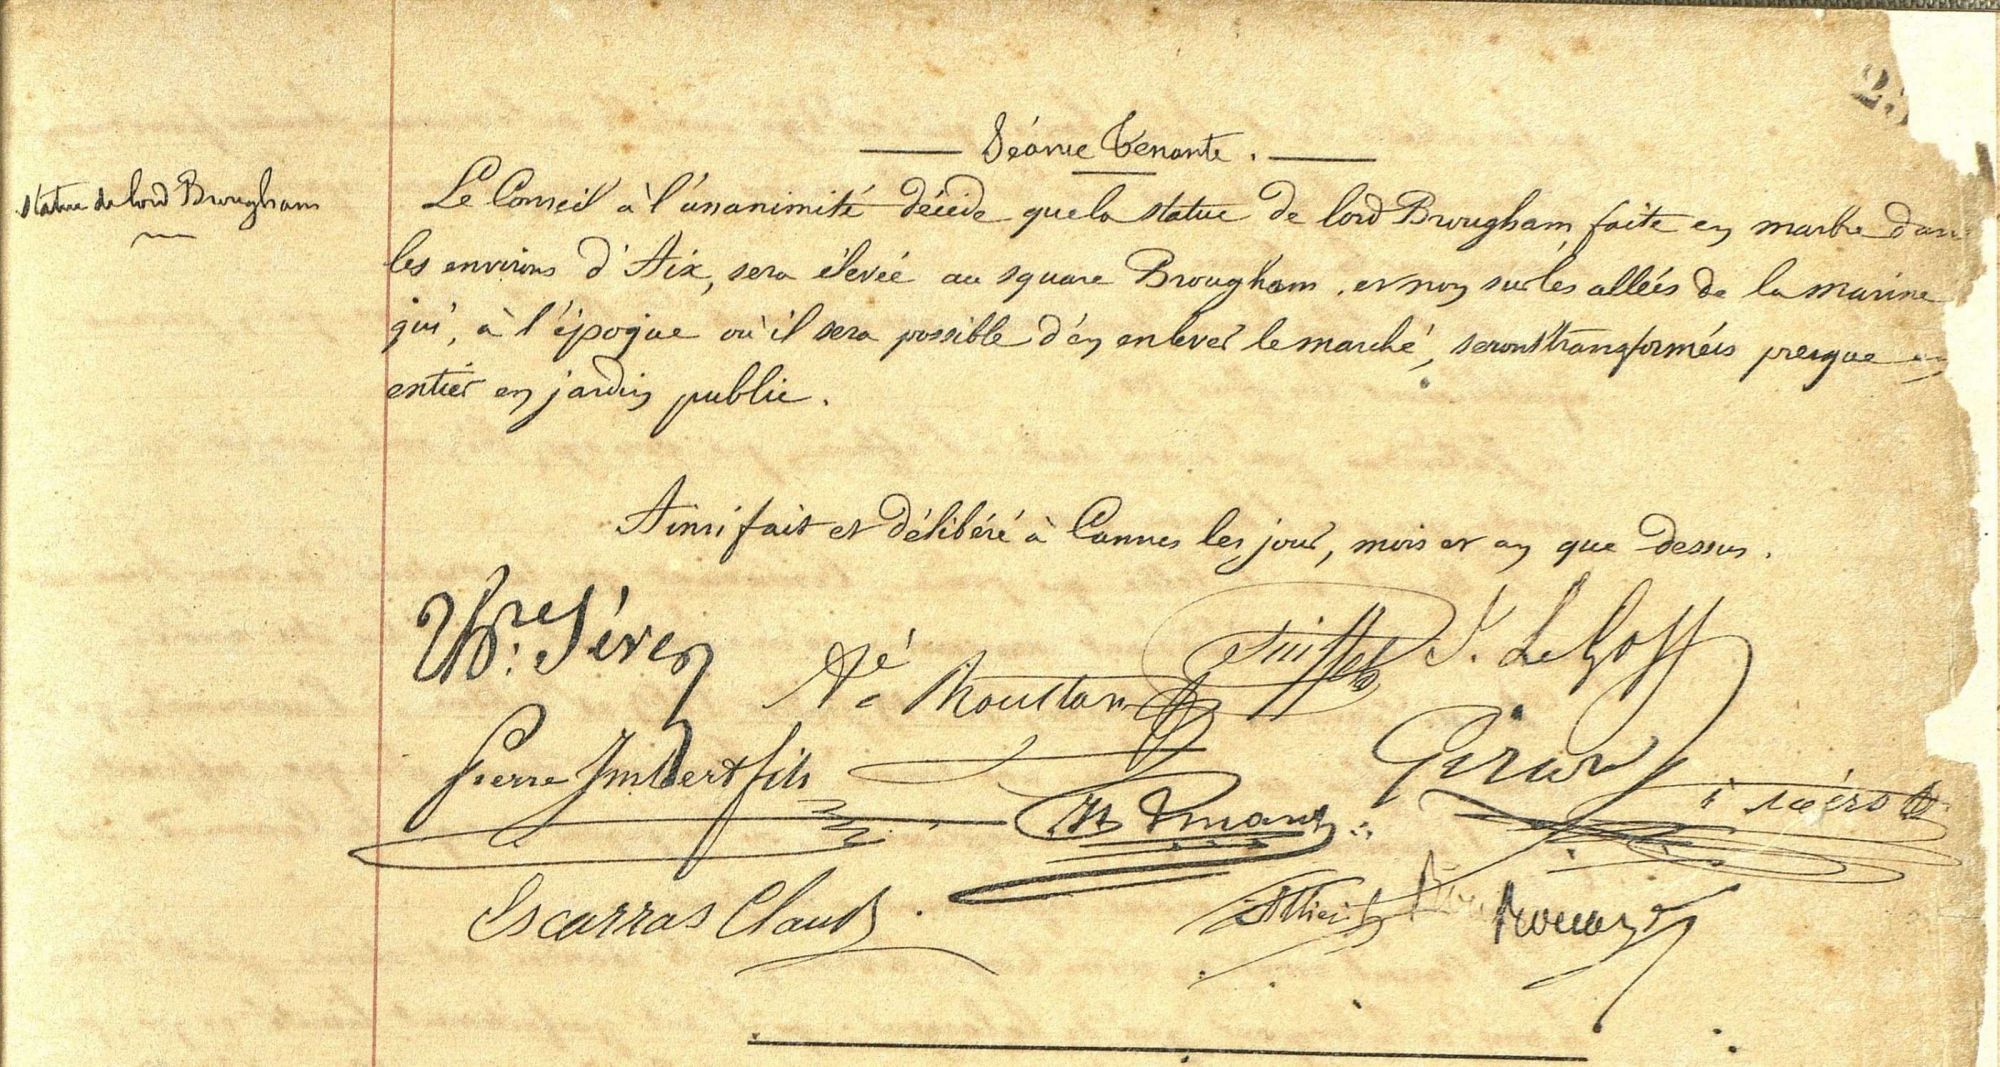 Séance Tenante.
Statue de lord Brougham
Le Conseil à l'unanimité décide que la statue de lord Brougham, faite en marbre dans
les environs d'Aix, sera élevée au square Brougham, et non sur les allées de la marine
qui, à l'époque où il sera possible d'en enlever le marché, seront transformées presque en
entier en jardin public.
Ainsi fait et délibéré à Cannes les jour, mois et an que dessus.
J. Le Goff
Roustan
Pierre Imbert fils
Girard
Escarras Claude